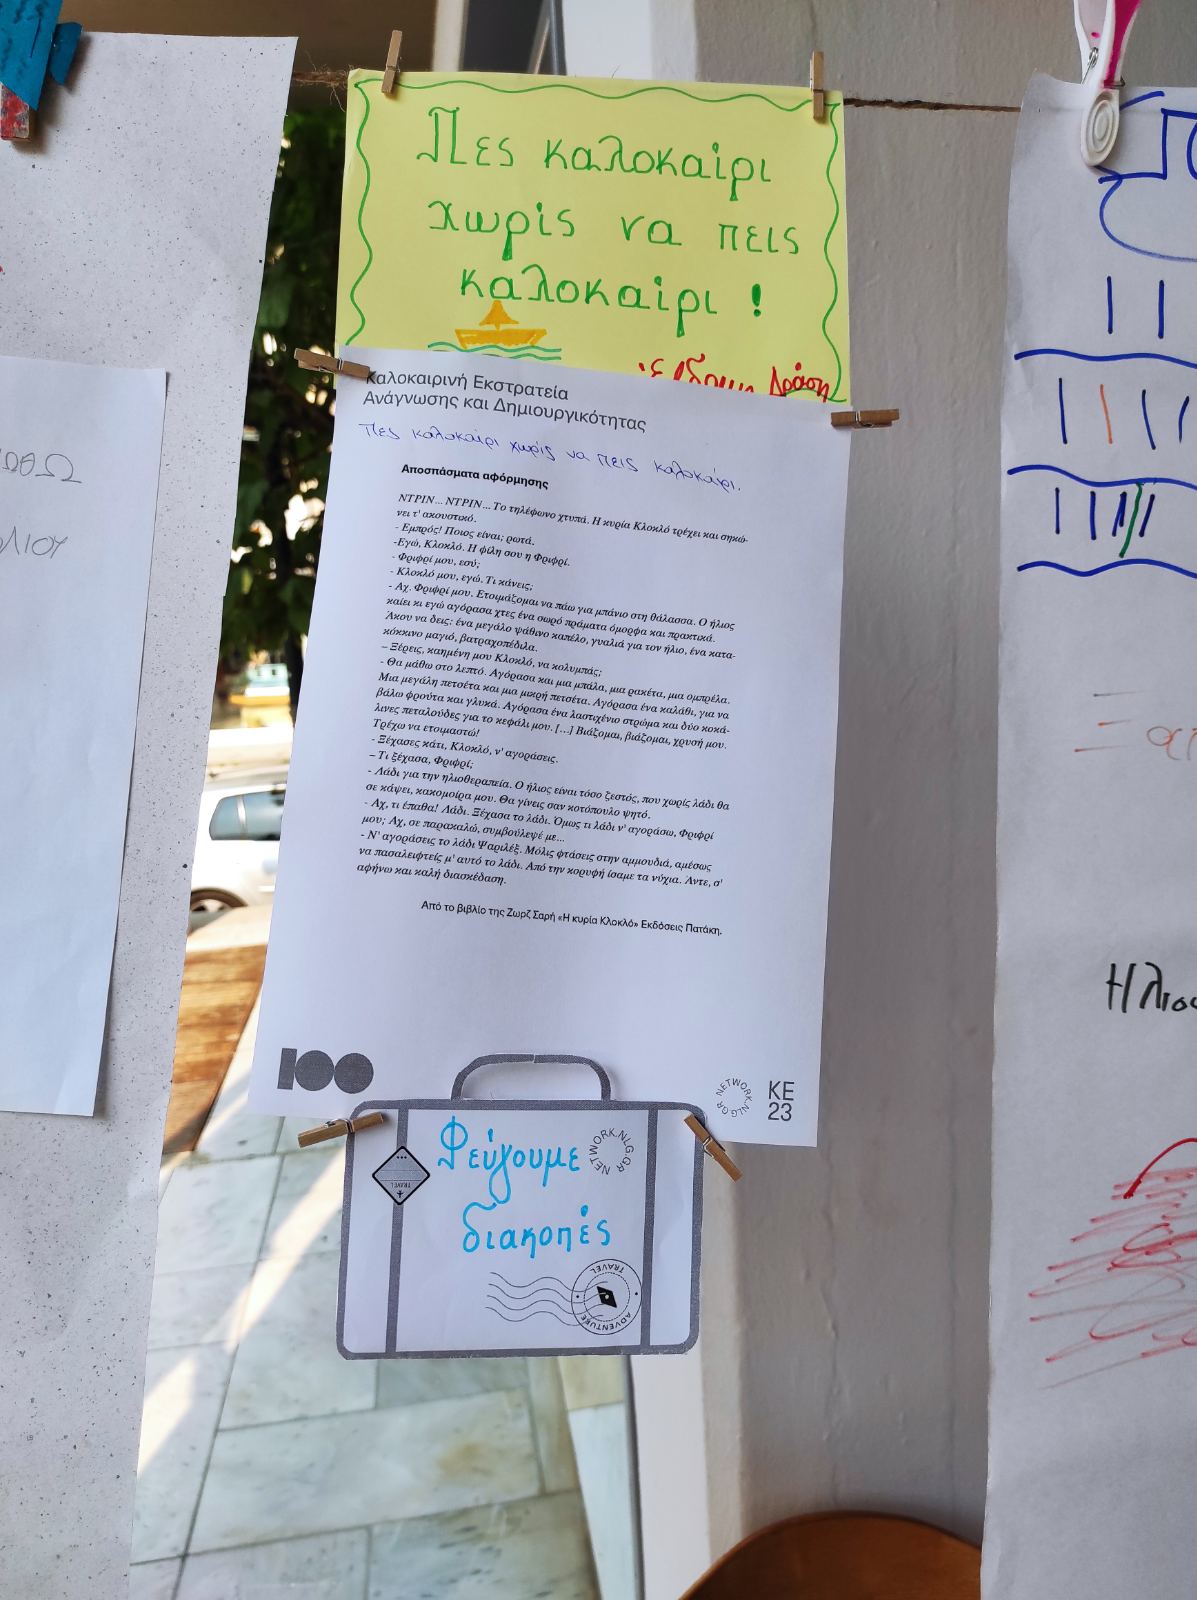 Πες καλοκαίρι
χωρίς να πεις
καλοκαίρι !
Δράση
Καλοκαιρινή Εκστρατεία
Ανάγνωσης και Δημιουργικότητας
Πες καλοκαίρι χωρίς να πεις καλοκαίρι.
Αποσπάσματα αφόρμησης
ΝΤΡΙΝ... ΝΤΡΙΝ... Το τηλέφωνο χτυπά. Η κυρία Κλοκλό τρέχει και σηκώ-
νει τ' ακουστικό.
- Εμπρός! Ποιος είναι; ρωτά.
-Εγώ, Κλοκλό. Η φίλη σου η Φριφρί.
- Φριφρί μου, εσύ;
- Κλοκλό μου, εγώ. Τι κάνεις;
- Αχ. Φριφρί μου. Ετοιμάζομαι να πάω για μπάνιο στη θάλασσα. Ο ήλιος
καίει κι εγώ αγόρασα χτες ένα σωρό πράματα όμορφα και πρακτικά.
Άκου να δεις: ένα μεγάλο ψάθινο καπέλο, γυαλιά για τον ήλιο, ένα κατα-
κόκκινο μαγιό, βατραχοπέδιλα.
– Ξέρεις, καημένη μου Κλοκλό, να κολυμπάς;
- Θα μάθω στο λεπτό. Αγόρασα και μια μπάλα, μια ρακέτα, μια ομπρέλα.
Μια μεγάλη πετσέτα και μια μικρή πετσέτα. Αγόρασα ένα καλάθι, για να
βάλω φρούτα και γλυκά. Αγόρασα ένα λαστιχένιο στρώμα και δύο κοκά-
λινες πεταλούδες για το κεφάλι μου. [...] Βιάζομαι, βιάζομαι, χρυσή μου.
Τρέχω να ετοιμαστώ!
- Ξέχασες κάτι, Κλοκλό, ν' αγοράσεις.
– Τι ξέχασα, Φριφρί;
- Λάδι για την ηλιοθεραπεία. Ο ήλιος είναι τόσο ζεστός, που χωρίς λάδι θα
σε κάψει, κακομοίρα μου. Θα γίνεις σαν κοτόπουλο ψητό.
- Αχ, τι έπαθα! Λάδι. Ξέχασα το λάδι. Όμως τι λάδι ν' αγοράσω, Φριφρί
μου; Αχ, σε παρακαλώ, συμβούλεψέ με...
- Ν' αγοράσεις το λάδι Ψαριλέξ. Μόλις φτάσεις στην αμμουδιά, αμέσως
να πασαλειφτείς μ' αυτό το λάδι. Από την κορυφή ίσαμε τα νύχια. Άντε, σ'
αφήνω και καλή διασκέδαση.
Από το βιβλίο της Ζωρζ Σαρή «Η κυρία Κλοκλό» Εκδόσεις Πατάκη.
100
NETWORK.NLG.GR
ΚΕ
23
Φεύγουμε
διακοπές
NETWORK.NLG.GR
TRAVEL
TRAVEL
ADVENTURE